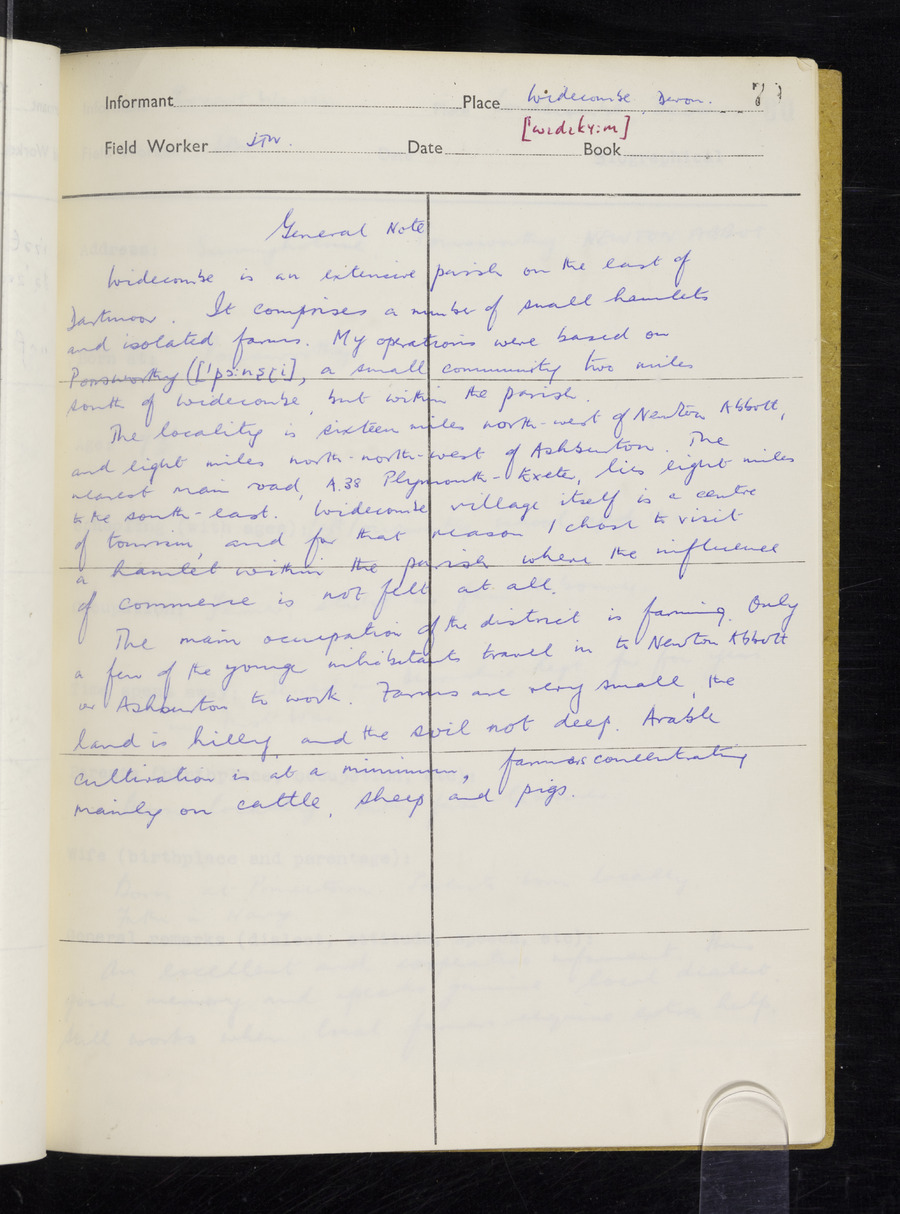 Informant Place Widecombe, Devon.
[ˈwɪdɪkʏːm]
Field Worker JTW. Date Book
General Note
Widecombe is an extensive parish on the east of
Dartmoor. It comprises a number of small hamlets
and isolated farms. My operations were based on
Ponsworthy, a small community two miles
south of Widecombe, but within the parish.
The locality is sixteen miles north-west of Newton Abbott,
and eight miles north-north-west of Ashburton. The
nearest main road, A.38 Plymouth-Exeter, lies eight miles
to the south-east. Widecombe village itself is a centre
of tourism, and for that reason I chose to visit
a hamlet within the parish where the influence
of commerce is not felt at all.
The main occupation of the district is farming. Only
a few of the younge inhabitants travel in to Newton Abbott
or Ashburton to work. Farms are very small, the
land is hilly and the soil not deep. Arable
cultivation is at a minimum, farmers concentrating
mainly on cattle, sheep and pigs.